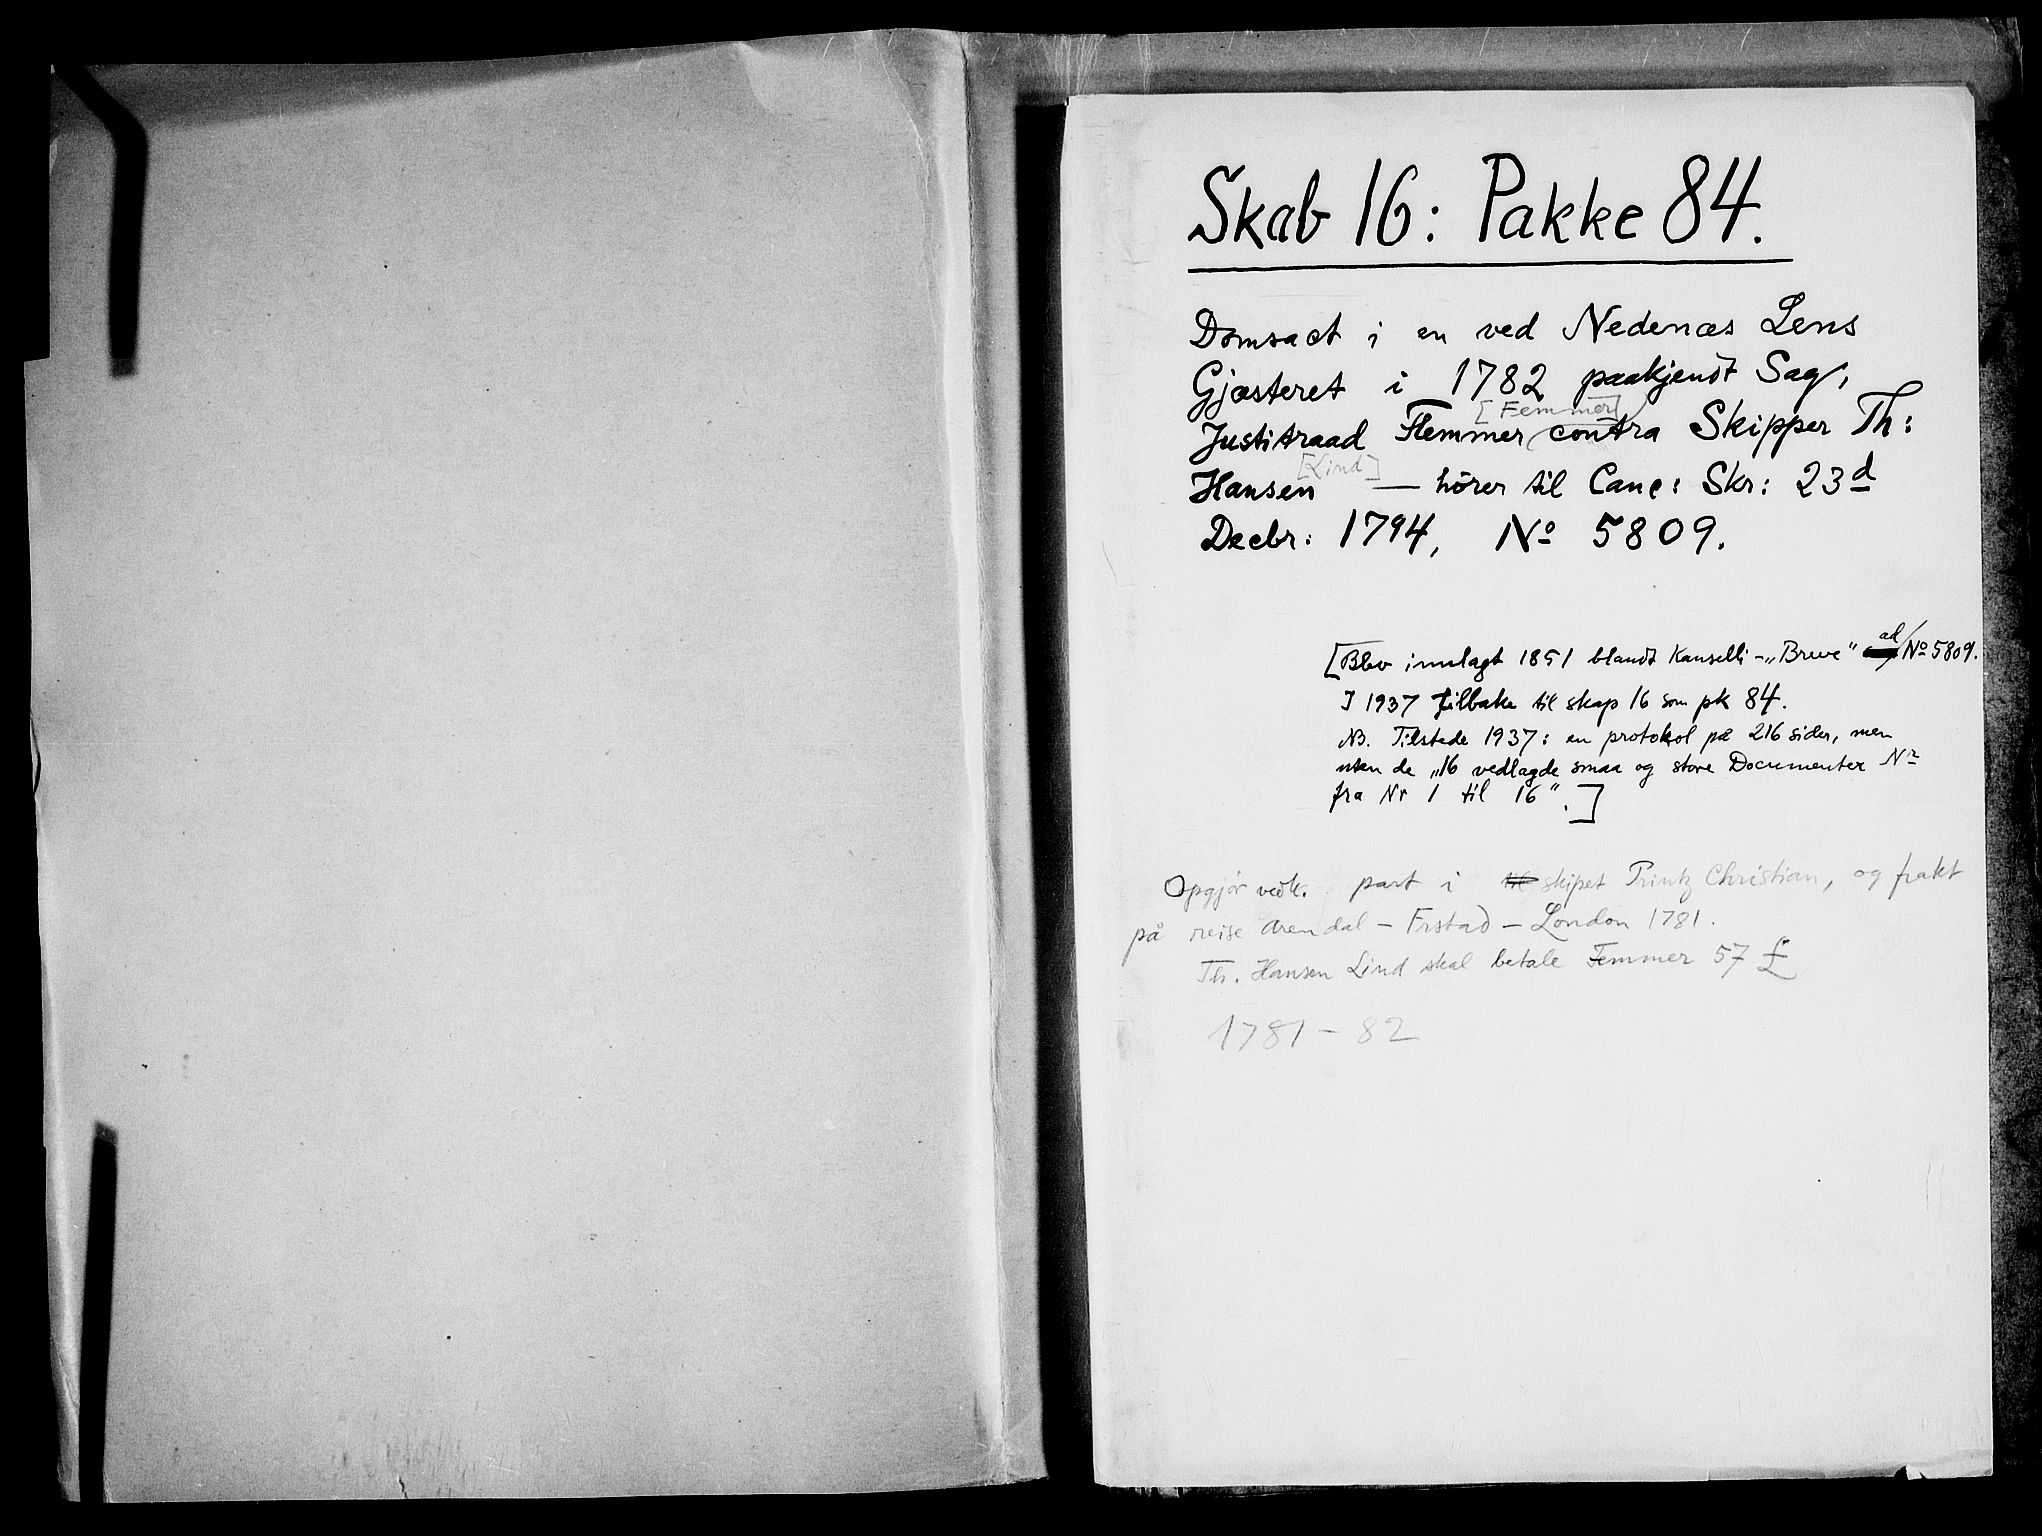 Skab 16: Pakke 84.
Domsact i en ved Nedenæs Lens
Gjæsteret i 1782 paakjendt Sag,
[Femmer]
Justitsraad Flemmer contra Skipper Th:
[Lind]
Hansen — hører til Canc: Skr: 23d
Decbr: 1794, No 5809.
[Blev innlagt 1851 blandt Kanselli-„Breve" ad No 5809.
I 1937 tilbake til skap 16 som pk 84.
NB. Tilstede 1937: en protokol på 216 sider, men
uten de „16 vedlagde smaa og store Documenter Nr
fra Nr 1 til 16".]
Opgjør vedk. part i skipet Printz Christian, og frakt
på reise Arendal – Frstad – London 1781.
Th. Hansen Lind skal betale Femmer 57 £
1781 – 82